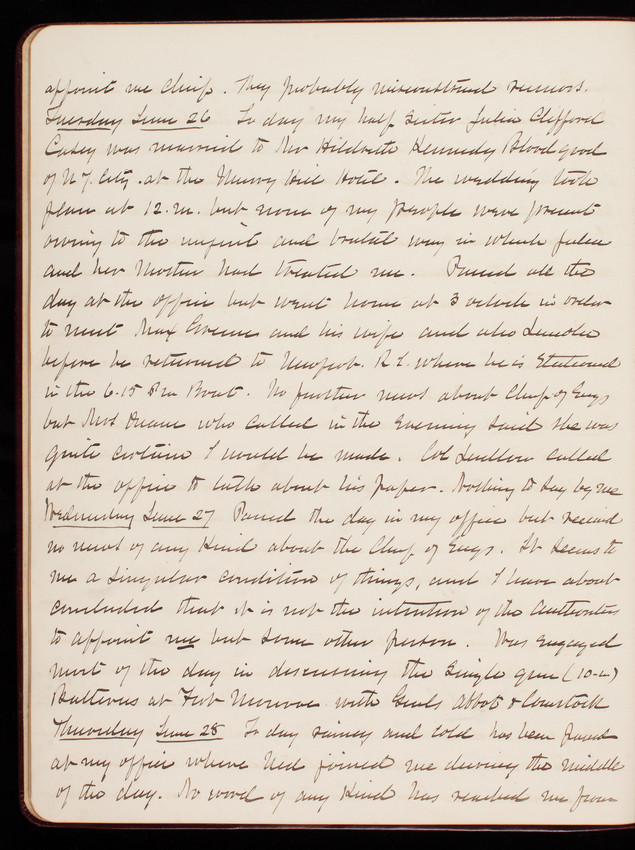 appoint me Chief. They probably misconstrued rumors.
Tuesday June 26 To day my half sister Julia Clifford
Casey was married to Mr Hildreth Kennedy Bloodgood
of N.Y. City. at the Murry Hill Hotel. The wedding took
place at 12. m. but none of my people were present
owing to the unjust and brutal way in which Julia
and her Mother had treated me. Passed all the
day at the office but went home at 3 oclock in order
to meet Max Greene and his wife and also Lincoln
before he returned to Newport. R.I. where he is Stationed
in the 6.15 P.m Boat. No further news about Chief of Engs
but Mrs Duane who called in the Evening said she was
quite certain I would be made. Col Ludlow called
at the office to talk about his paper. Nothing to say by me
Wednesday June 27 Passed the day in my office but received
no news of any kind about the Chief of Engs. It seems to
me a singular condition of things, and I have about
concluded that it is not the intention of the Authorities
to appoint me but some other person. Was Engaged
most of the day in discussing the Single gun (10-in)
Batteries at Fort Monroe with Genls Abbot & Comstock
Thursday June 28 To day rainy and cold has been passed
at my office where Ned joined me during the middle
of the day. No word of any kind has reached me from